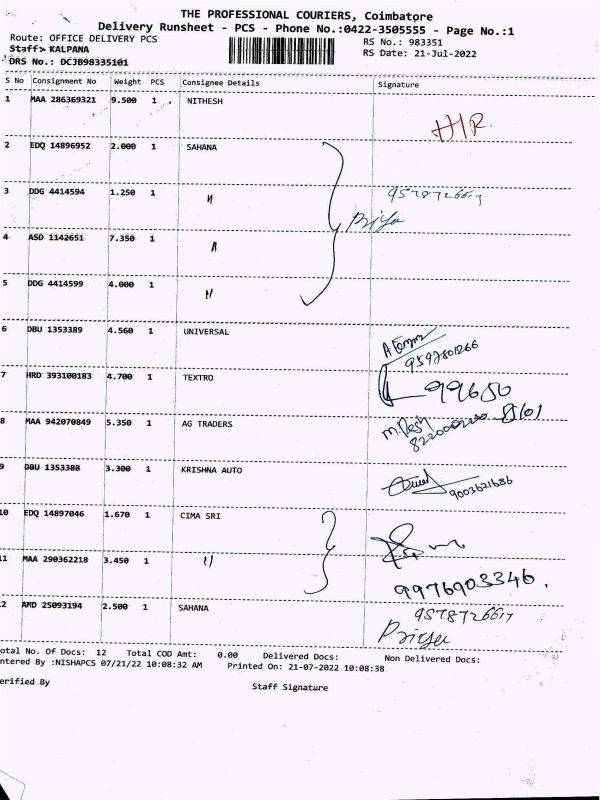 THE PROFESSIONAL COURIERS, Coimbatore
Delivery Runsheet - PCS - Phone No.:0422-3505555 - Page No.:1
Route: OFFICE DELIVERY PCS RS No.: 983351
Staff:- KALPANA RS Date: 21-Jul-2022
DRS No.: DCJB98335101
S No Consignment No Weight PCS Consignee Details Signature
1 MAA 286369321 9.500 1 NITHESH
HR
2 EDQ 14896952 2.000 1 SAHANA
3 DDG 4414594 1.250 1 〃 9578726617
Priya
4 ASD 1142651 7.350 1 〃
5 DDG 4414599 4.000 1 〃
6 DBU 1353389 4.560 1 UNIVERSAL
7 HRD 393100183 4.700 1 TEXTRO 99650
8 MAA 942070849 5.350 1 AG TRADERS 8101
9 DBU 1353388 3.300 1 KRISHNA AUTO
9003621686
10 EDQ 14897046 1.670 1 CIMA SRI
11 MAA 290362218 3.450 1 〃
9976903346.
2 AMD 25093194 2.500 1 SAHANA 9578726617
Priya
otal No. Of Docs: 12 Total COD Amt: 0.00 Delivered Docs: Non Delivered Docs:
ntered By :NISHAPCS 07/21/22 10:08:32 AM Printed On: 21-07-2022 10:08:38
erified By Staff Signature